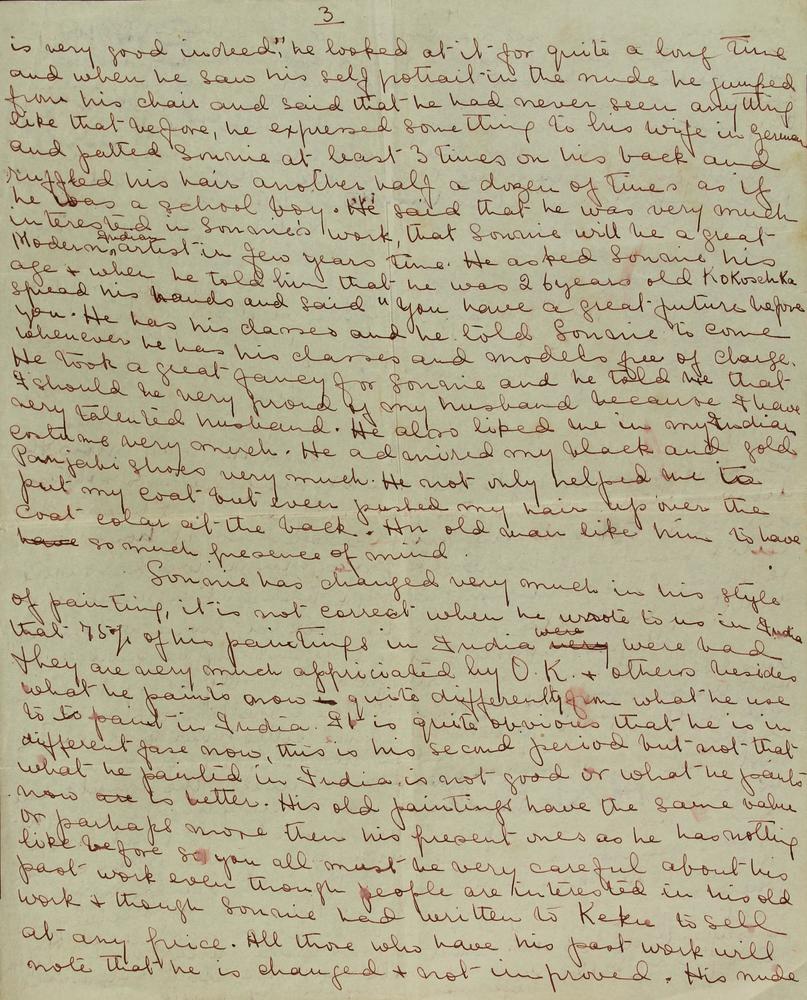 3
is very good indeed", he looked at it for quite a long time
and when he saw his self potrait in the nude he jumped
from his chair and said that he had never seen anything
like that before, he expressed something to his wife in German
and patted Sonnie at least 3 times on his back and
ruffled his hair another half a dozen of times as if
he was a school boy. He said that he was very much
interested in Sonnie's work, that Sonnie will be a great
Modern Indian artist in few years time. He asked Sonnie his
age & when he told him that he was 26 years old Kokoschka
spread his hands and said "You have a great future before
you. He has his classes and he told Sonnie to come
whenever he has his classes and models free of charge.
He took a great fancy for Sonnie and he told me that
I should be very proud of my husband because I have
very talented husband. He also liked me in my Indian
costume very much. He admired my black and gold
Panjabi shoes very much. He not only helped me to
put my coat but even pushed my hair up over the
coat colar at the back. An old man like him to have
have so much presence of mind.
Sonnie has changed very much in his style
of painting, it is not correct when he wrote to us in India
that 75% of his paintings in India were very were bad
they are very much appriciated by O.K. & others besides
what he paints now quite differently from what he use
to to paint in India. It is quite obvious that he is in
different fase now, this is his second period but not that
what he painted in India is not good or what he paints
now are is better. His old paintings have the same value
or parhaps more then his present ones as he has nothing
like before so you all must be very careful about his
past work even though people are interested in his old
work & though Sonnie had written to Keku to sell
at any price. All those who have his past work will
note that he is changed & not improved. His nude